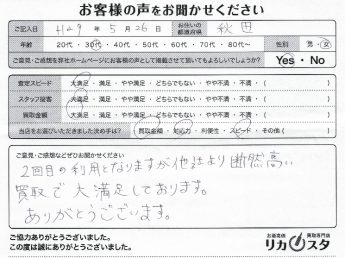 お客様の声をお聞かせください
ご記入日 H29 年 5 月 26 日 お住いの都道府県 秋田
年齢 20代・30代・40代・50代・60代・70代・80代〜 性別 男・女
ご意見・ご感想を弊社ホームページにお客様の声として掲載させて頂いてもよろしいでしょうか? Yes・No
査定スピード 大満足・満足・やや満足・どちらでもない・やや不満・不満・( )
スタッフ接客 大満足・満足・やや満足・どちらでもない・やや不満・不満・( )
買取金額 大満足・満足・やや満足・どちらでもない・やや不満・不満・( )
当店をお選びいただきました決め手は? 買取金額・対応力・利便性・スピード・その他( )
ご意見・ご感想などぜひお聞かせください
2回目の利用となりますが他社より断然高い
買取で大満足しております。
ありがとうございます。
ご協力ありがとうございました。
この度は誠にありがとうございました。
お酒高価買取専門店
リカスタ